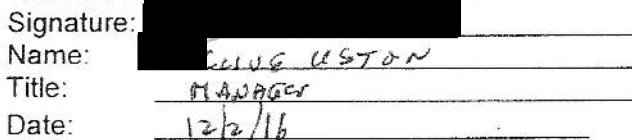 Signature:
Name: USTON
Title: MANAGER
Date: 12/2/16